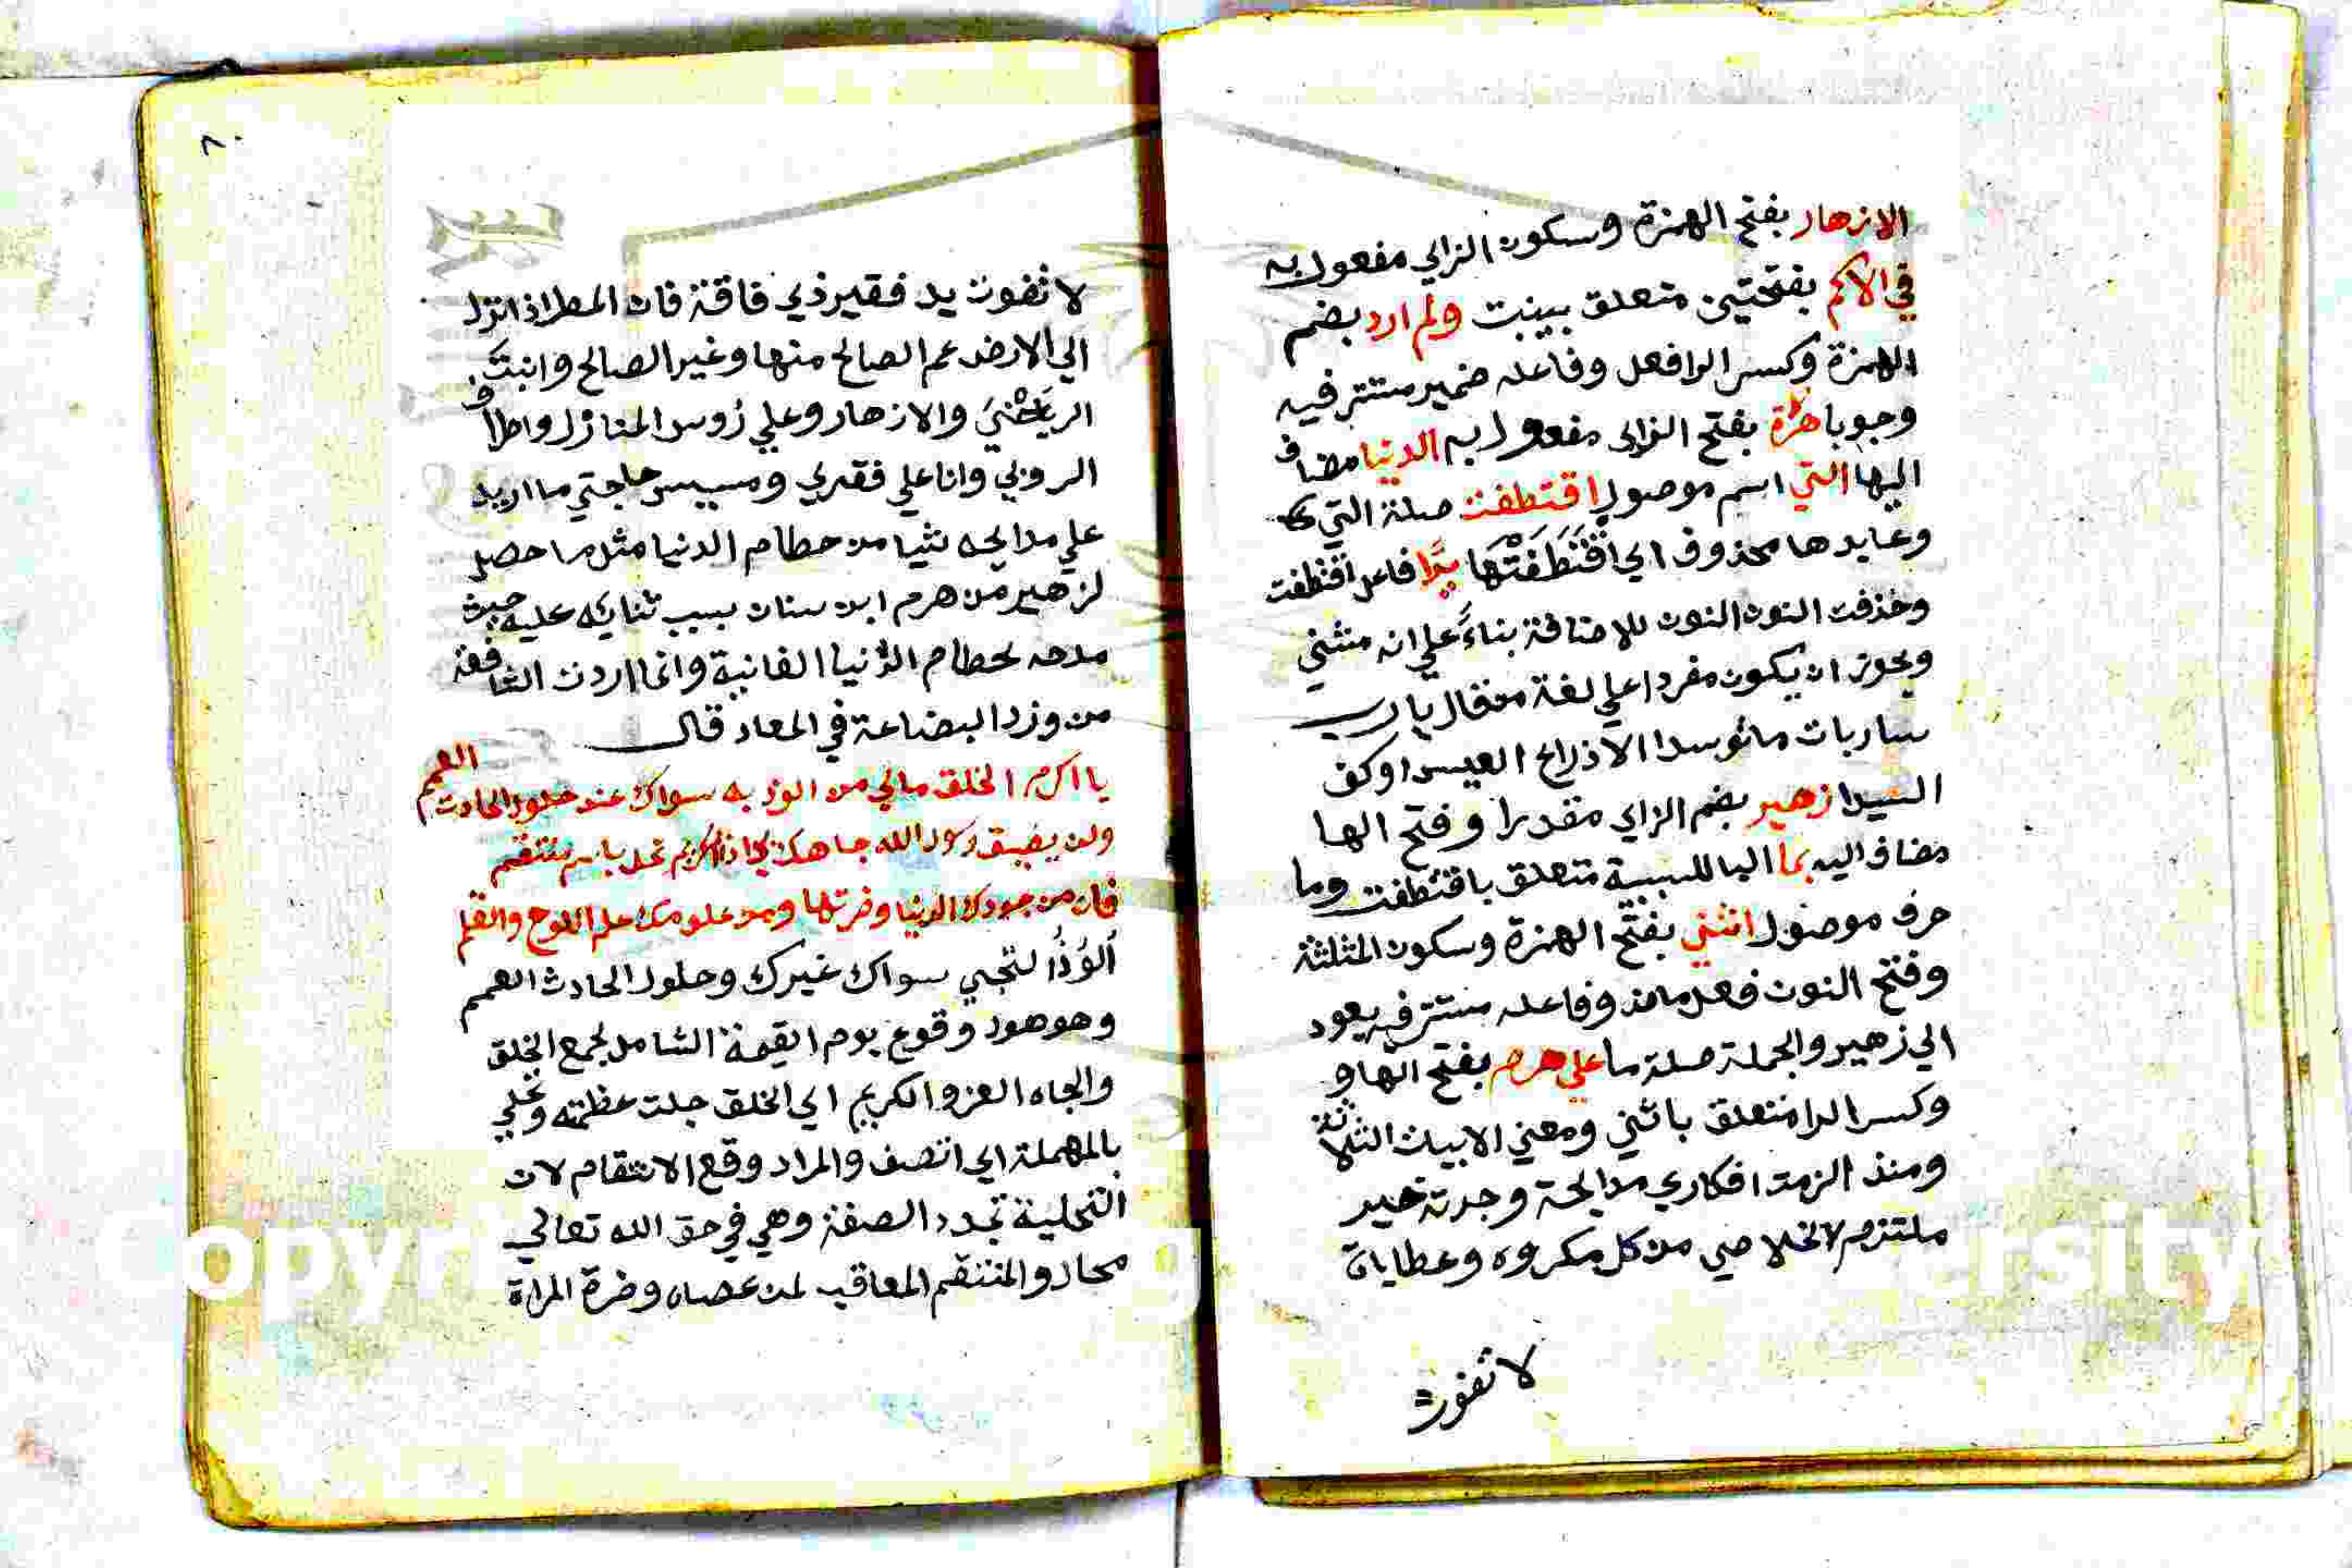 الازهار بفتح الهمزة وسكون الزاي مفعول به
في الاكم بفتحتين متعلق بينبت ولم ارد بضم
الهمزة وكسر الرا فعل وفاعله ضمير مستتر فيه
وجوبا زهرة بفتح الزاي مفعول به الدنيا مضاف
اليها التي اسم موصول اقتطفت صلة التي
وعايدها محذوف اي اقْتَطَفَتْهَا يدا فاعل اقتطفت
وحذفت النون النون للاضافة بناءً علي انه مثني
ويجوز ان يكون مفردا علي لغة من قال يا رب
ساربات ما توسدا الا ذراع العيس او كف
اليدا زهير بضم الزاي مقدرا وفتح الها
مضاف اليه بما البا للسببية متعلق باقتطفت وما
حرف موصول اثني بفتح الهمزة وسكون المثلثة
وفتح النون فعل ماض وفاعله مستتر فيه يعود
الي زهير والجملة صلة ما علي هرم بفتح الها و
وكسر الرا متعلق باثني ومعني الابيات الثلاثة
ومنذ الزمت افكاري مدايحه وجدته خير
ملتزم لاخلاصي من كل مكروه وعطاياه
لا تفوت
٨٠
لا تفوت يد فقير ذي فاقة فان المطر اذا نزل
الي الارض عم الصالح منها وغير الصالح وانبت
الرياحين والازهار وعلي رؤس المنازل واطراف
الروبي وانا علي فقري ومسيس حاجتي ما اريد
علي مدايحه شيا من حطام الدنيا مثل ما حصل
لزهير من هرم ابن سنان بسبب ثنايه عليه حيث
مدحه لحطام الدنيا الفانية وانما اردت الشافعة
من وزد البضاعة في المعاد قال
يا اكرم الخلق مالي من الوذ به سواك عند حلول الحادث العمم
ولن يضيق رسول الله جاهك بي اذا الكريم تحلي باسم منتقم
فان من جودك الدنيا وضرتها ومن علومك علم اللوح والقلم
اَلُوْذُ التجي سواك غيرك وحلول الحادث العمم
وهو هول وقوع يوم القيمة الشامل لجمع الخلق
والجاه العز والكريم اي الخلق جلت عظمته وتحلي
بالمهملة اي اتصف والمراد وقع الانتقام لان
التحلية تجدد الصفة وهي في حق الله تعالي
محاز والمنتقم المعاقب لمن عصاه وضرة المراة